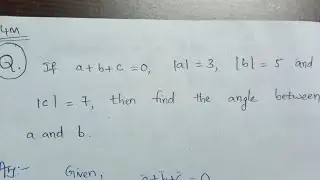 4M
Q. If a+b+c=0, |a|=3, |b|=5 and
|c|=7, then find the angle between
a and b.
Given, a̅+b̅+c̅=0